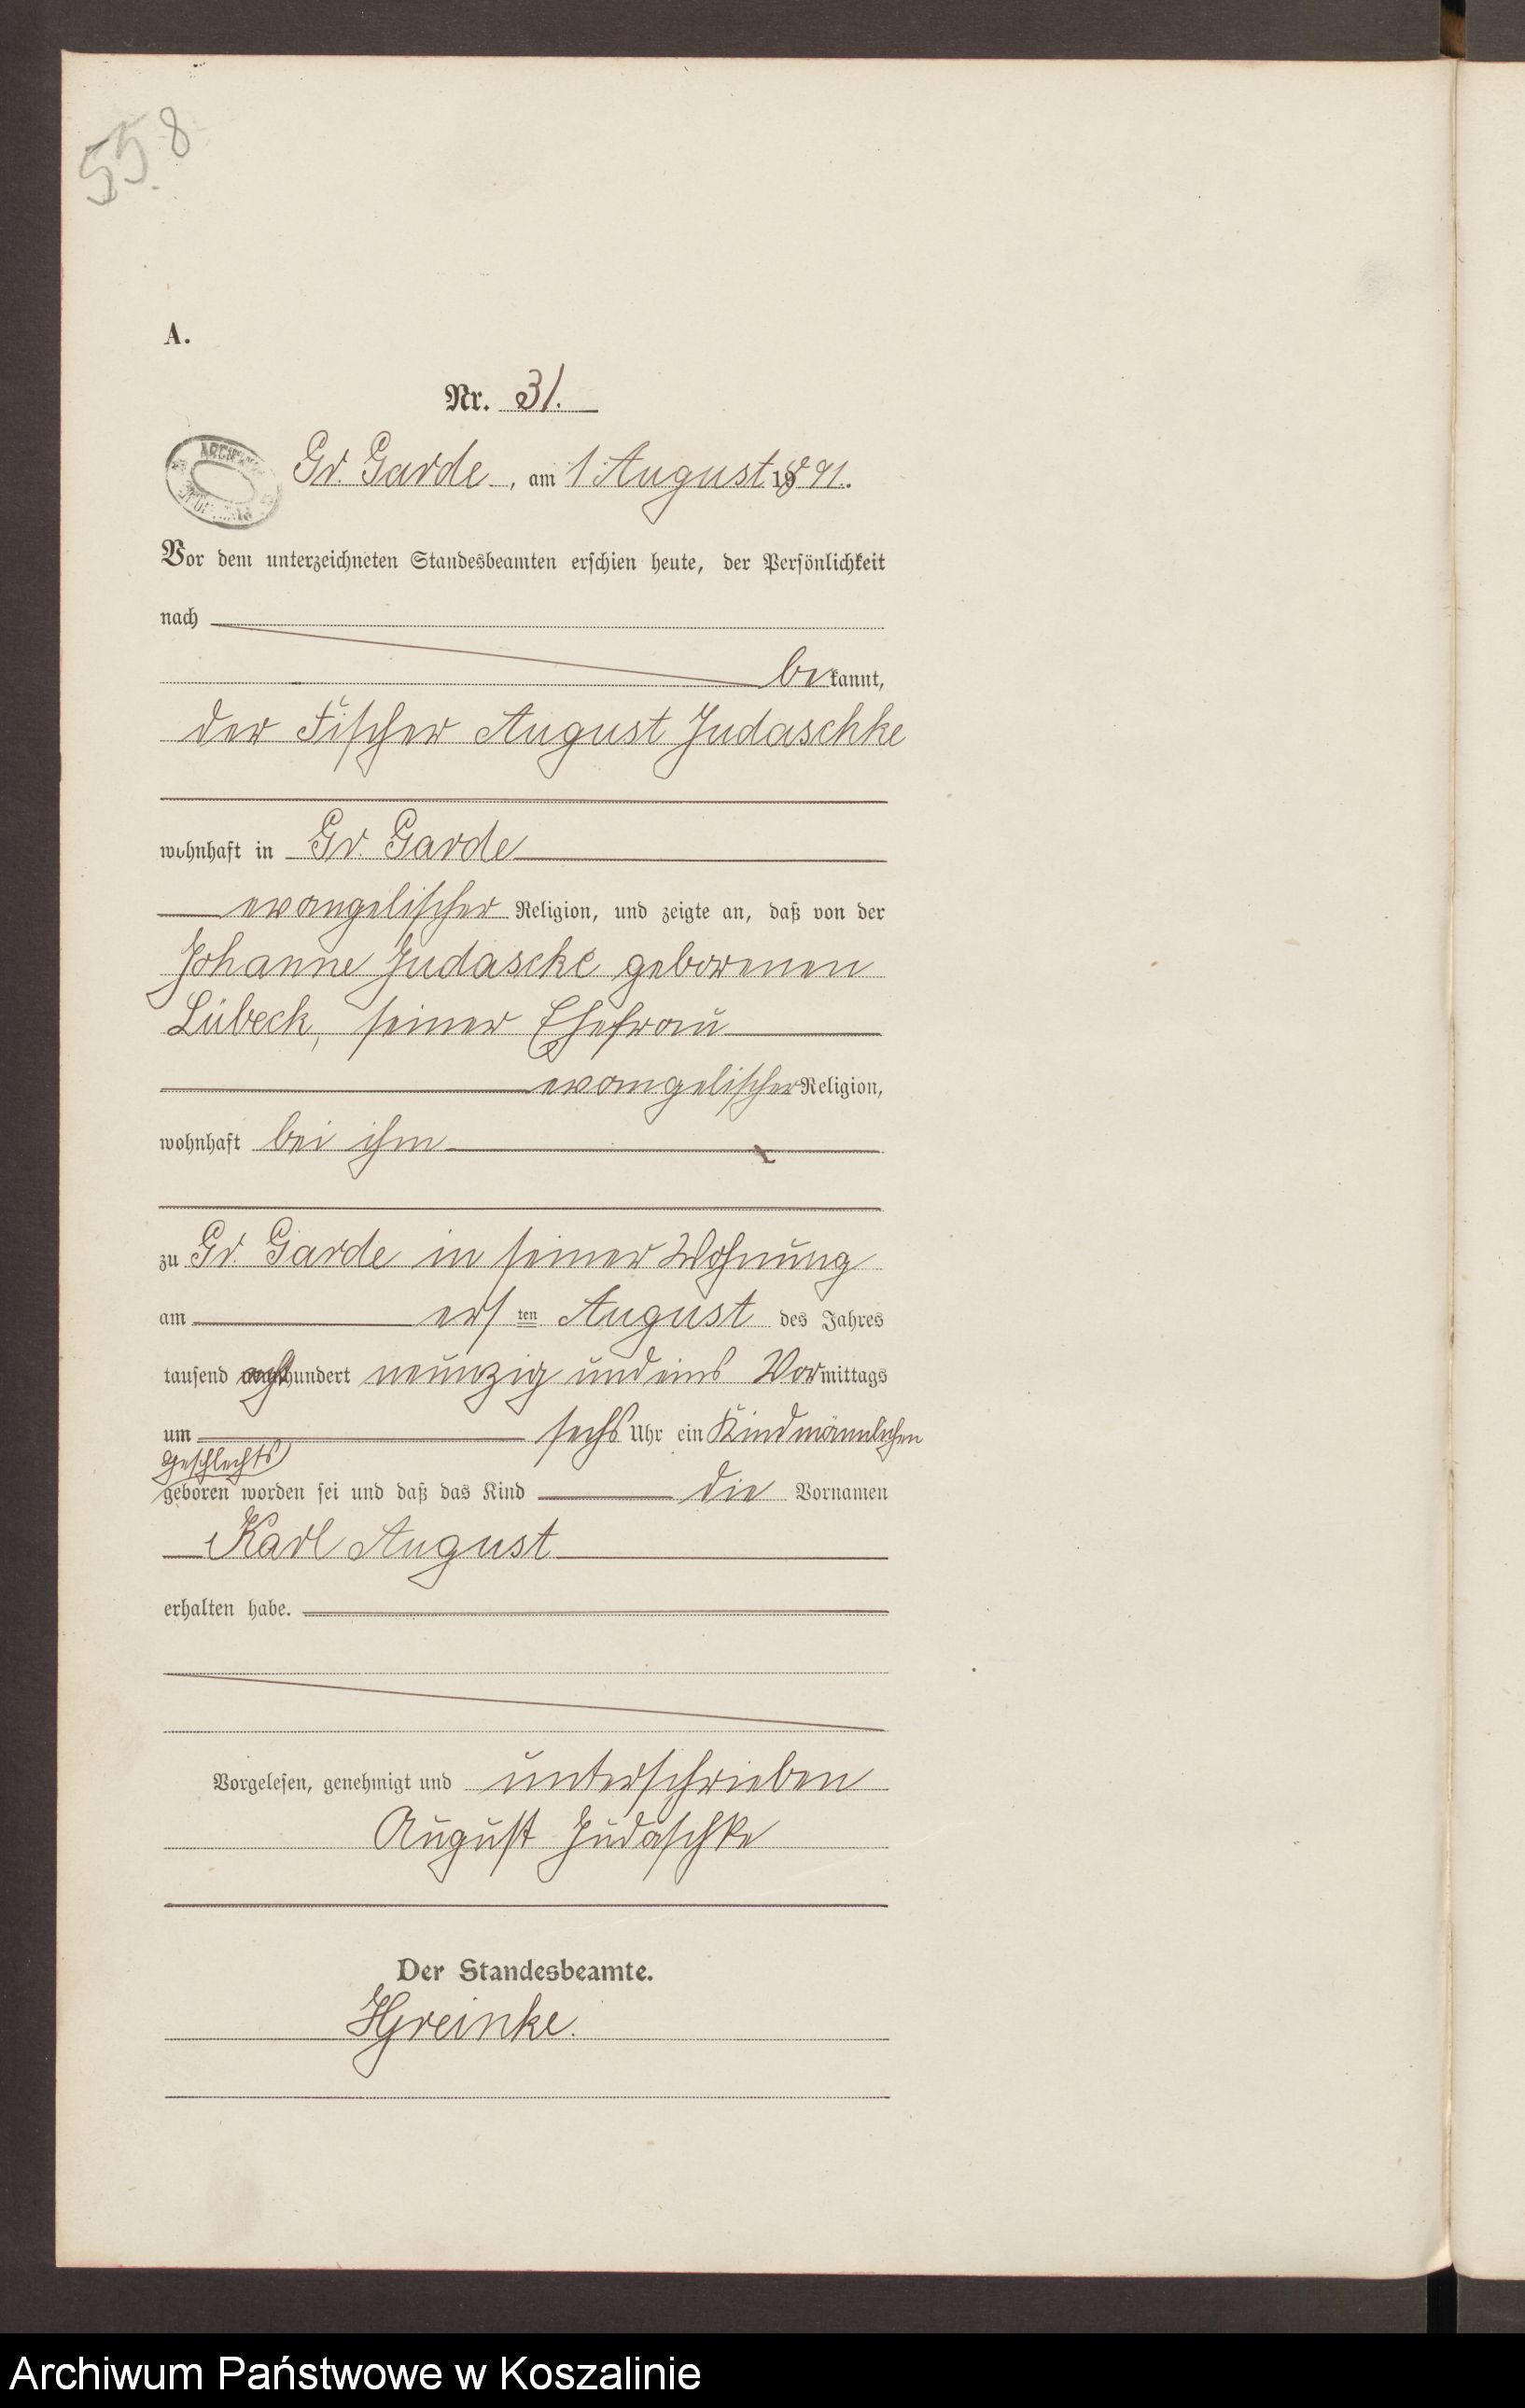 558
A.
Nr. 31.
Gr. Garde, am 1 August 1891.
Vor dem unterzeichneten Standesbeamten erschien heute, der Persönlichkeit
nach
bekannt,
der Fischer August Judaschke
wohnhaft in Gr. Garde
evangelischer Religion, und zeigte an, daß von der
Johanne Judascke geborenen
Lübeck, seiner Ehefrau
evangelischer Religion,
wohnhaft bei ihm
zu Gr. Garde in seiner Wohnung
am ersten August des Jahres
tausend achthundert neunzig und eins Vormittags
um sechs Uhr ein Kind männlichen
Geschlechts
geboren worden sei und daß das Kind die Vornamen
Karl August
erhalten habe.
Vorgelesen, genehmigt und unterschrieben
August Judaschke
Der Standesbeamte.
Greinke.
Archiwum Państwowe w Koszalinie